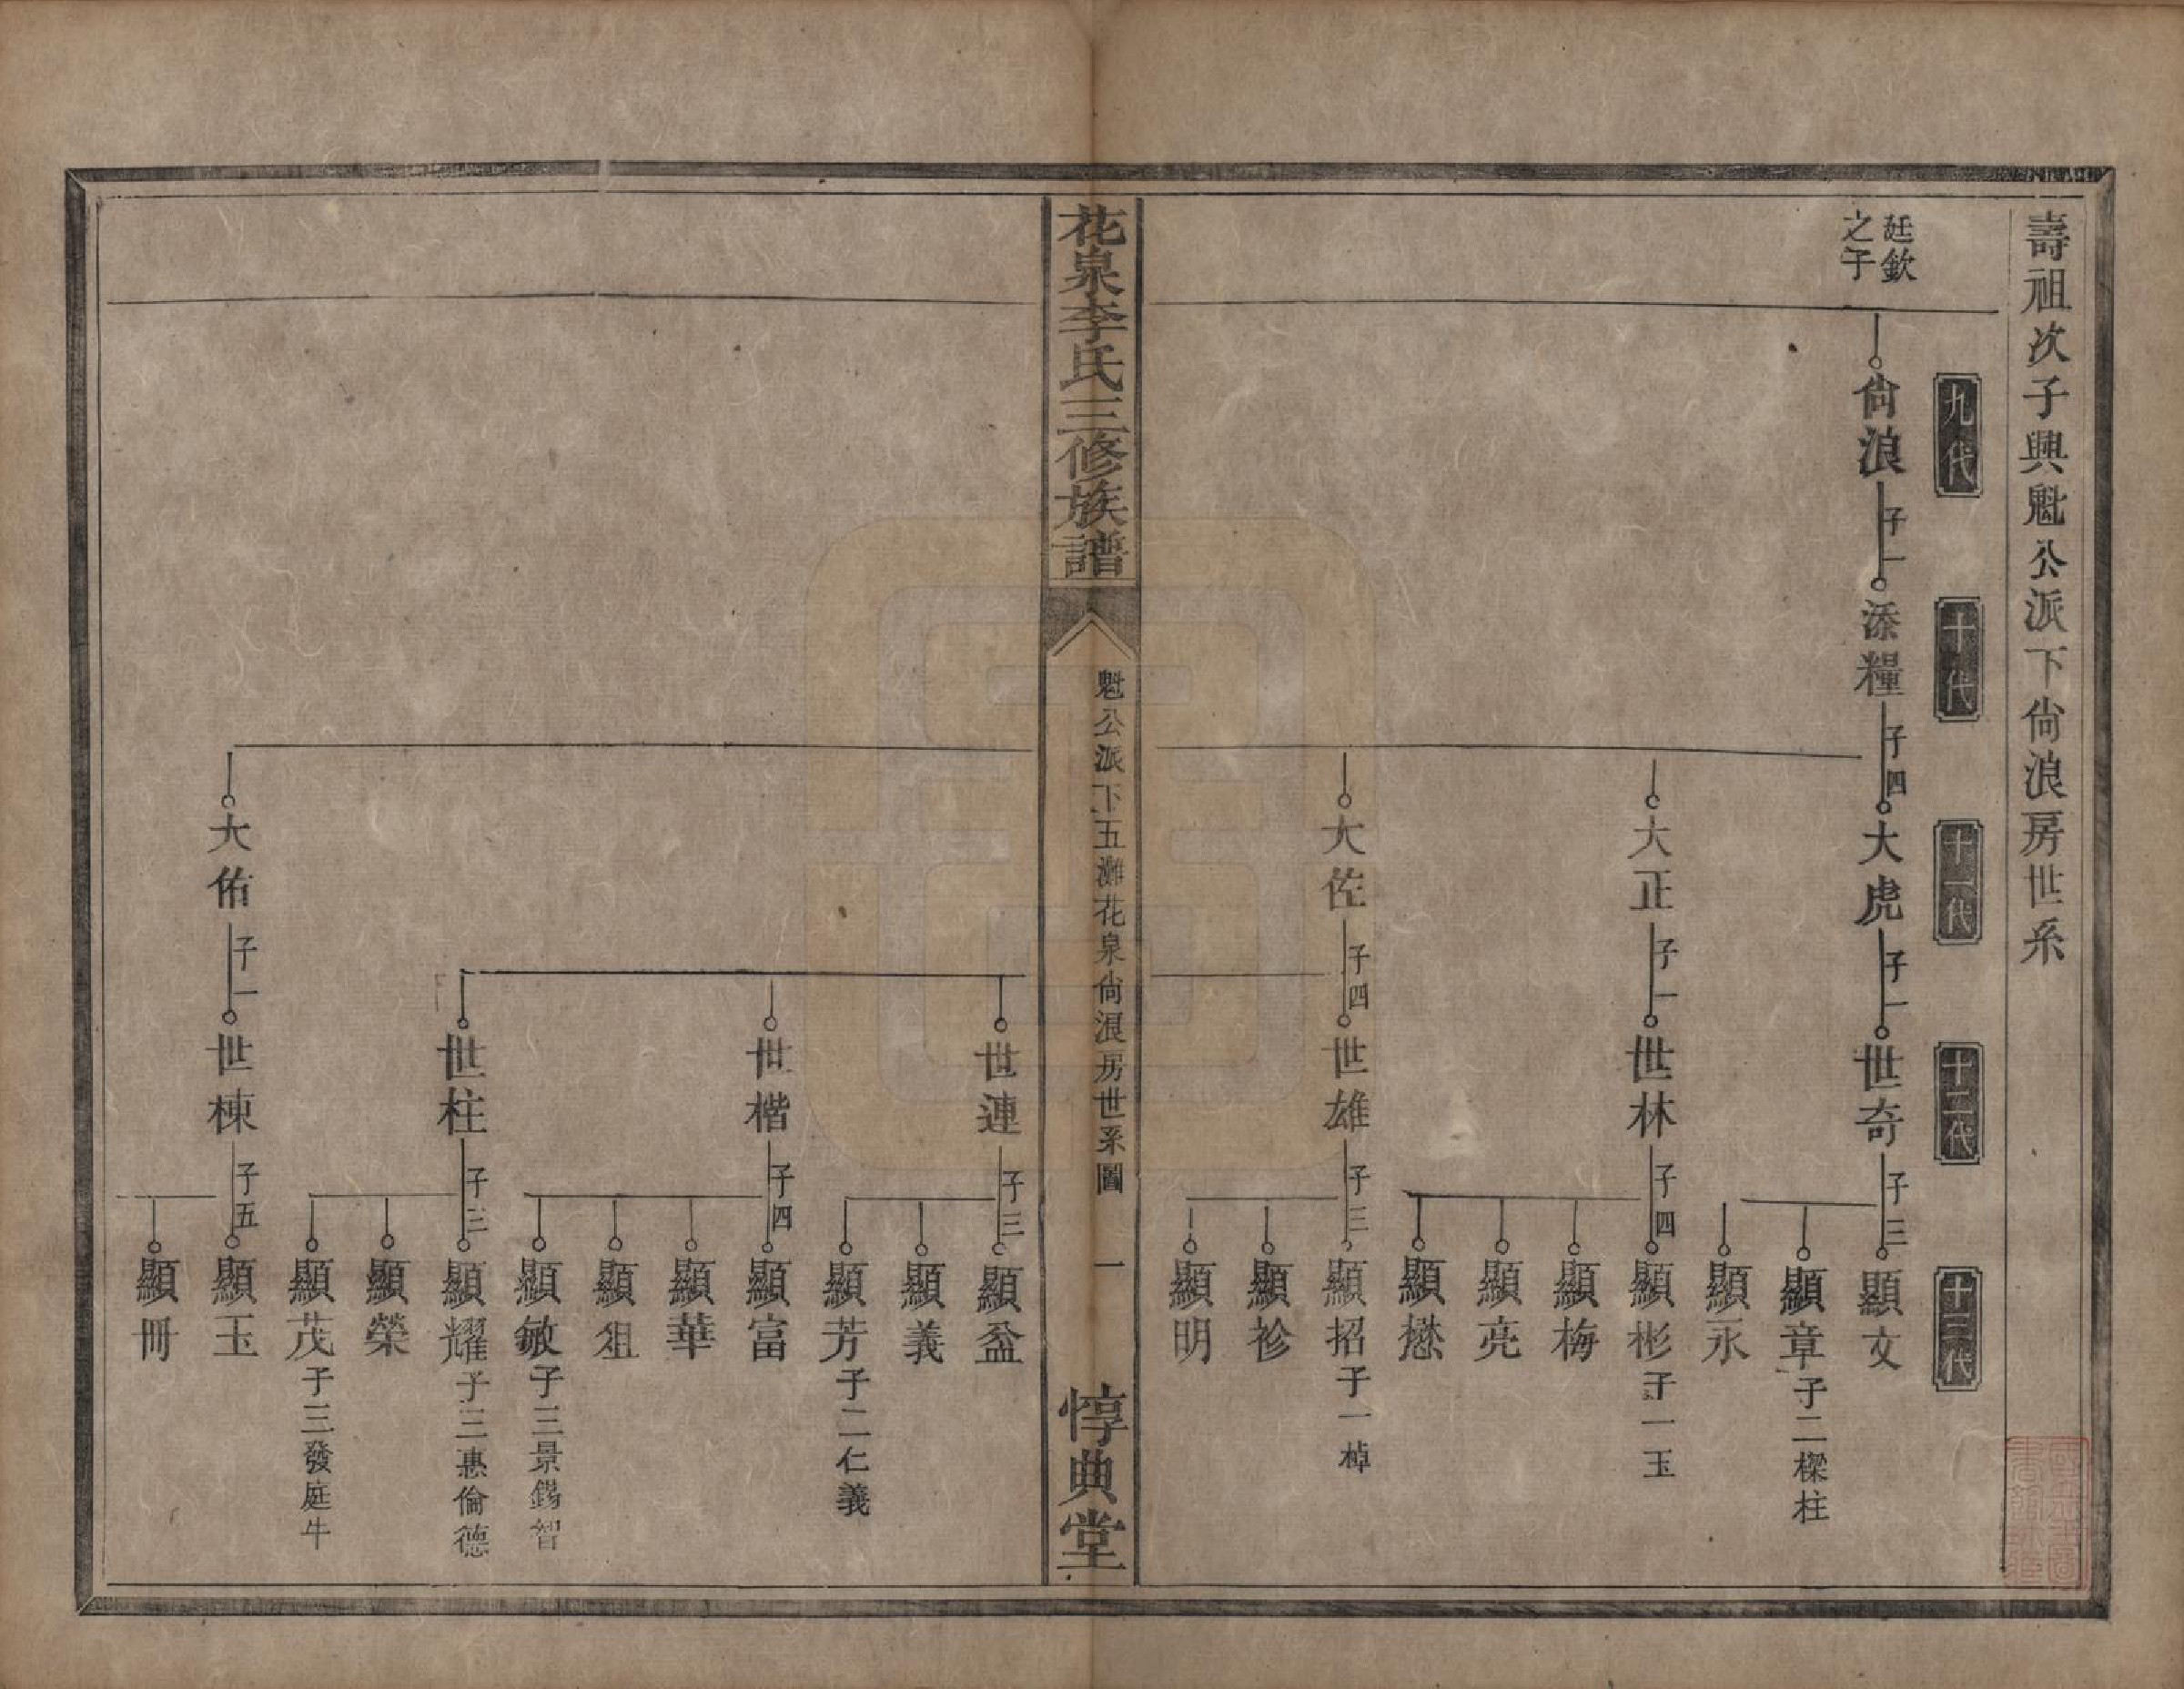 壽祖次子興魁公派下尙浪房世系
九代
十代
十一代
十二代
十三代
廷欽
之子
尙浪 子一
添糧 子四
大虎 子一
世奇 子三
顯文
顯章 子二樑柱
顯永
大正 子一
世林 子四
顯彬 子一玉
顯梅
顯亮
顯懋
大佐 子四
世雄 子三
顯招 子一棹
顯袗
顯明
花泉李氏三修族譜
魁公派下五灘花泉尙浪房世系圖
一
惇典堂
世連 子三
顯益
顯義
顯芳 子二仁義
世楷 子四
顯富
顯華
顯俎
顯敏 子三景錫智
世柱 子三
顯耀 子三惠倫德
顯榮
顯茂 子三發庭牛
大佑 子一
世棟 子五
顯玉
顯冊